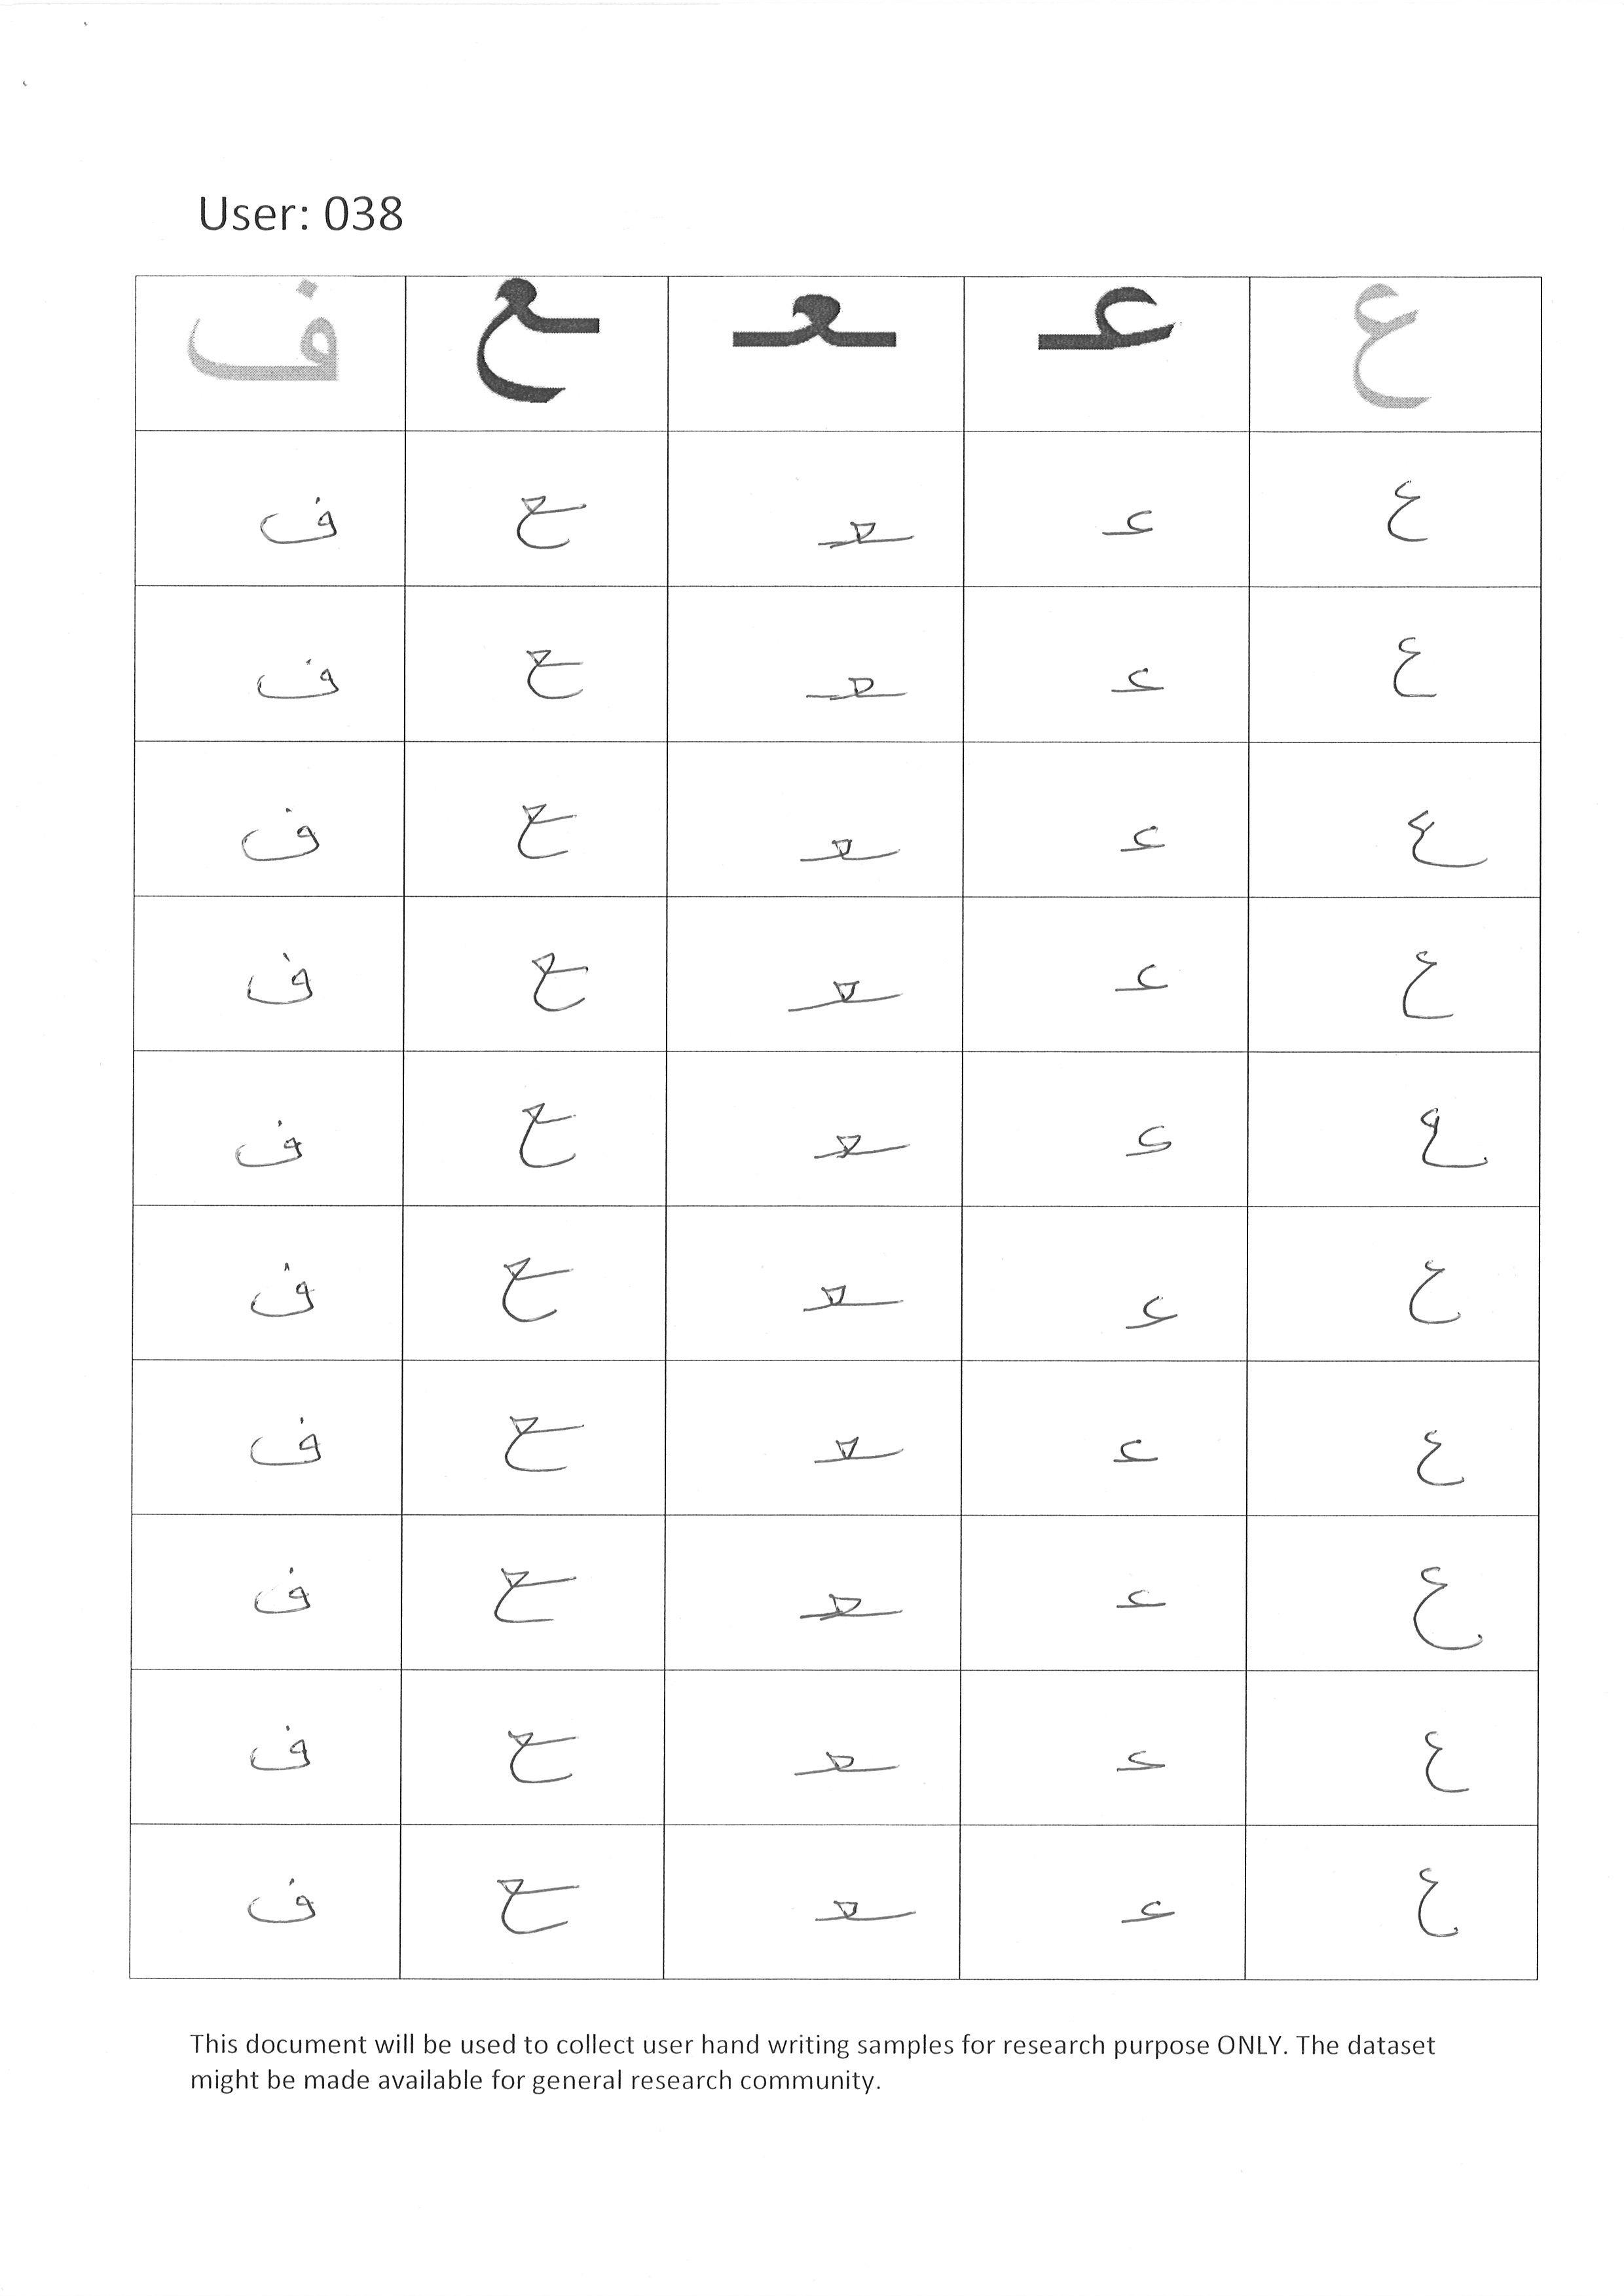 User: 038
ع عـ ـعـ ـع ف
ع عـ ـعـ ـع ف
ع عـ ـعـ ـع ف
ع عـ ـعـ ـع ف
ع عـ ـعـ ـع ف
ع عـ ـعـ ـع ف
ع عـ ـعـ ـع ف
ع عـ ـعـ ـع ف
ع عـ ـعـ ـع ف
ع عـ ـعـ ـع ف
ع عـ ـعـ ـع ف
This document will be used to collect user hand writing samples for research purpose ONLY. The dataset
might be made available for general research community.